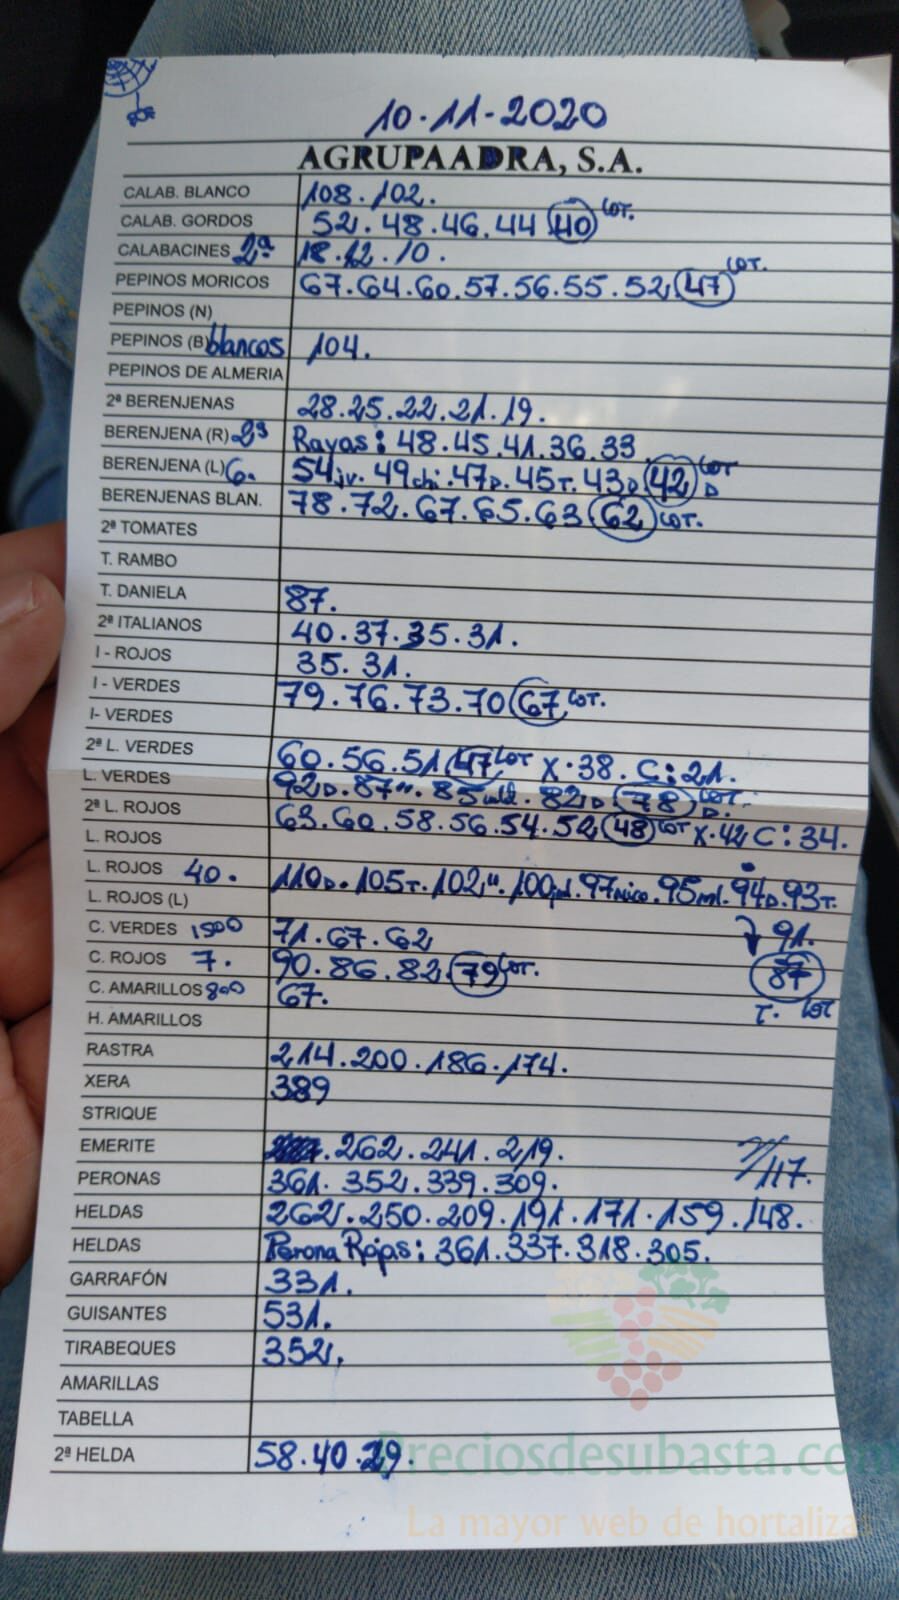 10.11-2020
AGRUPAADRA, S.A.
CALAB. BLANCO 108.102.
CALAB. GORDOS 52.48.46.44 40 COT.
CALABACINES 2ª 18.12.10.
PEPINOS MORICOS 67.64.60.57.56.55.52 47 COT.
PEPINOS (N)
PEPINOS (B) blancos 104.
PEPINOS DE ALMERIA
2ª BERENJENAS 28.25.22.21.19.
BERENJENA (R) 2ª Rayas: 48.45.41.36.33
BERENJENA (L) 6. 54jv. 49chi. 47D. 45T. 43D 42 D COT
BERENJENAS BLAN. 78.72.67.65.63 62 COT.
2ª TOMATES
T. RAMBO
T. DANIELA 87.
2ª ITALIANOS 40.37.35.31.
I - ROJOS 35.31.
I - VERDES 79.76.73.70 67 COT.
I- VERDES
2ª L. VERDES 60.56.51 47 COT X.38. C:21.
L. VERDES 92D. 87". 85 82D 78 D. COT.
2ª L. ROJOS 63.60.58.56.54.52 48 COT X.42 C:34.
L. ROJOS
L. ROJOS 40. 110D. 105T. 102". 100 97Nico. 95ml. 94D. 93T.
L. ROJOS (L) 91.
C. VERDES 1500 71.67.62
C. ROJOS 7. 90.86.82 79 COT. 87
C. AMARILLOS 800 67. T. COT
H. AMARILLOS
RASTRA 214.200.186.174.
XERA 389
STRIQUE
EMERITE .262.241.219. 117.
PERONAS 361.352.339.309.
HELDAS 262.250.209.191.171.159.148.
HELDAS Perona Rojas: 361.337.318.305.
GARRAFÓN 331.
GUISANTES 531.
TIRABEQUES 352.
AMARILLAS
TABELLA
2ª HELDA 58.40.29.
Preciosdesubasta.com
La mayor web de hortalizas